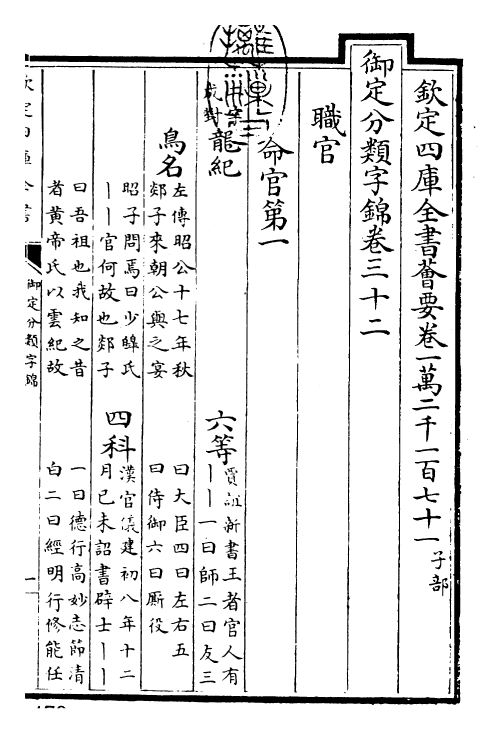 欽定四庫全書薈要卷一萬二千一百七十一 子部
御定分類字錦卷三十二
職官
命官第一
成對
龍紀
六等
賈誼新書王者官人有
丨丨一曰師二曰友三
曰大臣四曰左右五
曰侍御六曰厮役
鳥名
左傳昭公十七年秋
郯子來朝公與之宴
昭子問焉曰少皥氏
丨丨官何故也郯子
曰吾祖也我知之昔
者黃帝氏以雲紀故
四科
漢官儀建初八年十二
月己未詔書辟士丨丨
一曰德行高妙志節清
白二曰經明行修能任
欽定四庫全書
御定分類字錦
一